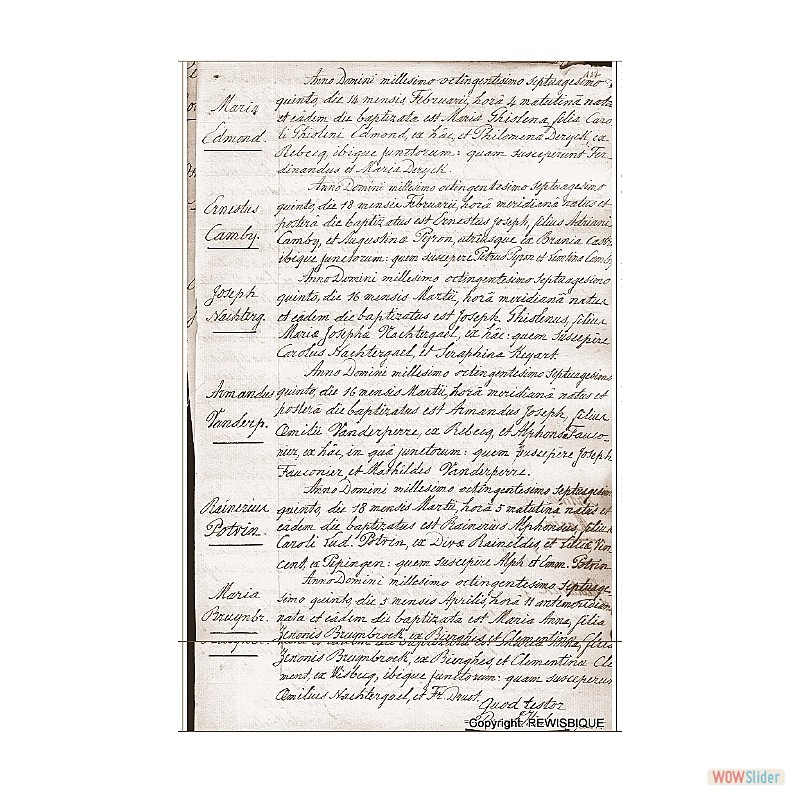 121.
Anno Domini millesimo octingentesimo septuagesimo
Maria
Edmond.
quinto, die 14 mensis Februarii, horâ 4 matutinâ nata
et eâdem die baptizata est Maria Ghislena, filia Caro
li Ghisleni Edmond, ex hâc, et Philomena Deryck, ex
Rebecq, ibique junctorum: quam susceperunt Fer
dinandus et Maria Deryck.
Anno Domini millesimo octingentesimo septuagesimo
Ernestus
Camby.
quinto, die 18 mensis Februarii, horâ meridianâ natus et
posterâ die baptizatus est Ernestus Joseph, filius Adriani
Camby, et Augustina Pyron, utriusque ex Brania Castri
ibique junctorum: quem suscepere Petrus Pyron et Camby
Anno Domini millesimo octingentesimo septuagesimo
Joseph
Nachterg.
quinto, die 16 mensis Martii, horâ meridianâ natus
et eâdem die baptizatus est Joseph Ghislenus, filius
Mariæ Josepha Nachtergael, ex hâc: quem suscepere
Carolus Nachtergael, et Seraphina
Anno Domini millesimo octingentesimo septuagesimo
Armandus
Vanderp.
quinto, die 16 mensis Martii, horâ meridianâ natus et
posterâ die baptizatus est Armandus Joseph, filius
Œmilii Vanderperre, ex Rebecq, et Alphonsa Fauco
nier, ex hâc, in quâ junctorum: quem suscepere Joseph
Fauconier, et Mathildes Vanderperre.
Anno Domini millesimo octingentesimo septuagesimo
Rainerius
Potvin.
quinto, die 18 mensis Martii, horâ 5 matutinâ natus et
eâdem die baptizatus est Rainerius Alphonsus, filius
Caroli Lud. Potvin, ex Divæ Raineldis et Vin
cent, ex Pepingen: quem suscepere Alph et Emm. Potvin
Anno Domini millesimo octingentesimo septuage
Maria
Bruynbr.
simo quinto, die 5 mensis Aprilis, horâ 11 antemeridianâ
nata et eâdem die baptizata est Maria Anna, filia
Zenonis Bruynbroek, ex Bierghes et Clementinæ Cle
ment, ex Wisbecq, ibique junctorum: quam susceperunt
Œmilius Nachtergael, et Fr. Doust.
Quod testor
Copyright: REWISBIQUE
WOWSlider